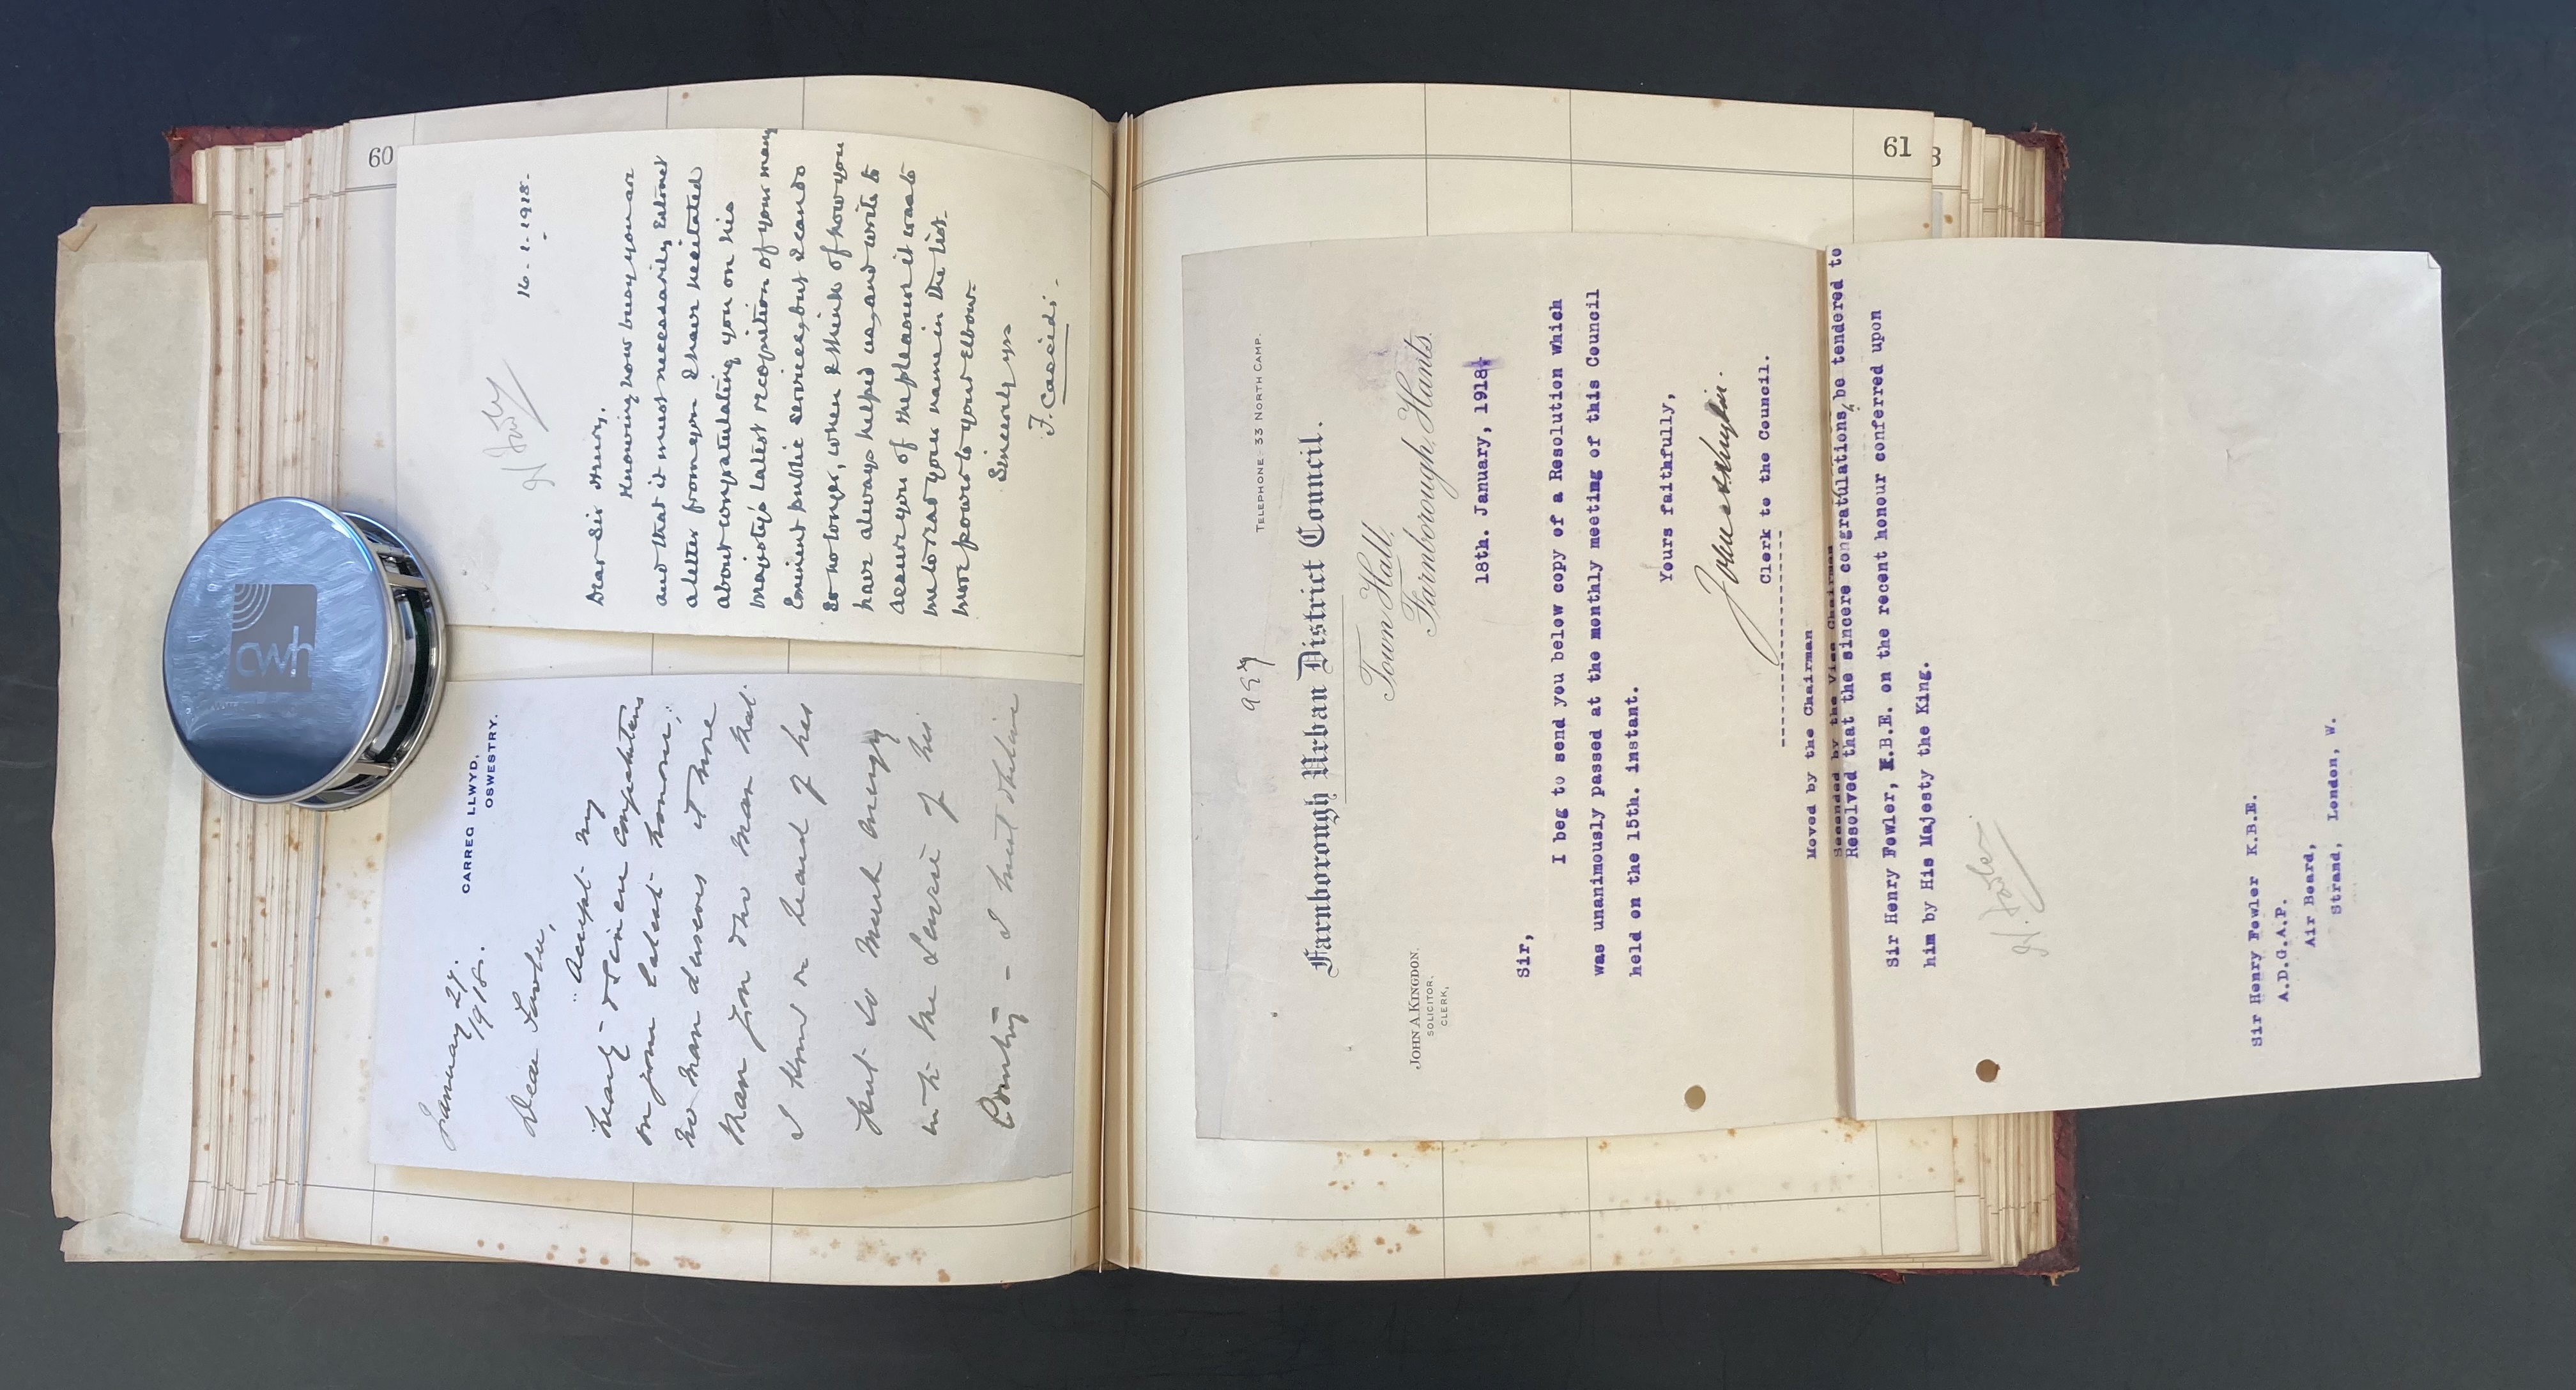 60
16-1-1918-
H Fowler
Dear Sir Henry.
Knowing how busy you are
and that it must necessarily extract
a letter from you I have hesitated
about congratulating you on his
majesty's latest recognition of your many
Eminent public services, but I can do
so no longer, when I think of how you
have always helped us, and write to
assure you of the pleasure it was to
me to read your name in the list.
more power to your Elbow-
Sincerely yrs
F. Cascidi.
CARREG LLWYD,
OSWESTRY.
January 27.
1918.
Dear Fowler,
Accept my
hearty & sincere congratulations
on your latest honour,
no man deserves it more
than you. No man that
I know or heard of has
put so much energy
into the Service of his
Country - I must
61
8
TELEPHONE - 33 NORTH CAMP.
Farnborough Urban District Council.
Town Hall,
Farnborough, Hants.
JOHN A KINGDON.
SOLICITOR.
CLERK,
18th. January, 1918
Sir,
I beg to send you below copy of a Resolution which
was unanimously passed at the monthly meeting of this Council
held on the 15th. instant.
Yours faithfully,
Clerk to the Council.
--------------------
Moved by the Chairman
Seconded by the Vice Chairman
Resolved that the sincere congratulations, be tendered to
Sir Henry Fowler, K.B.E. on the recent honour conferred upon
him by His Majesty the King.
H. Fowler
Sir Henry Fowler K.B.E.
A.D.G.A.P.
Air Board,
Strand, London, W.
cwh